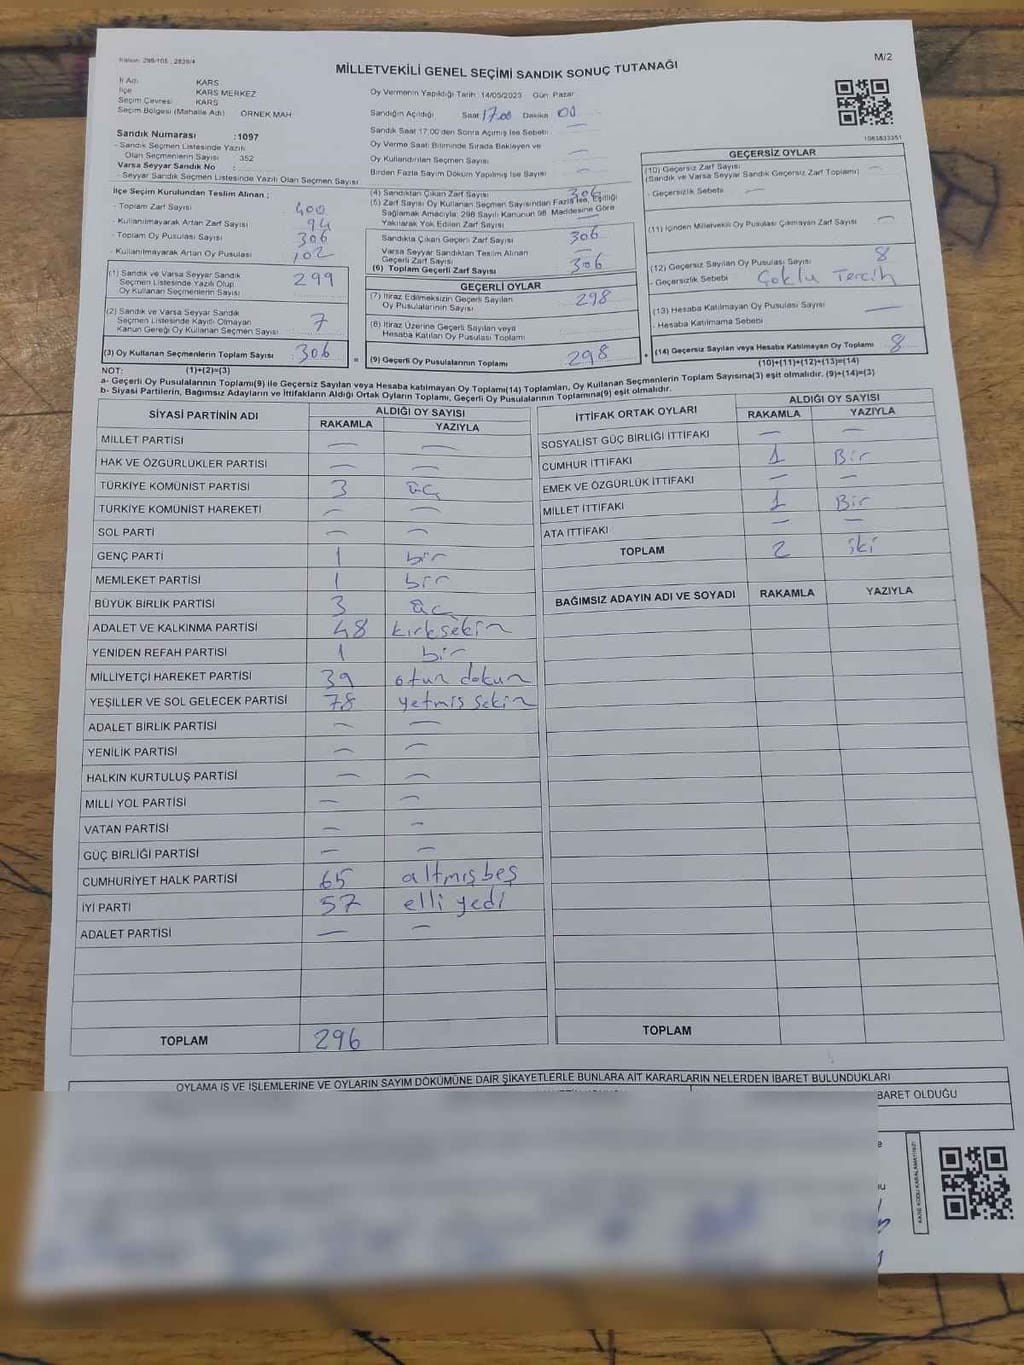 Kanun: 298/105 ; 2839/4
M/2
MİLLETVEKİLİ GENEL SEÇİMİ SANDIK SONUÇ TUTANAĞI
İl Adı KARS
İlçe KARS MERKEZ
Seçim Çevresi KARS
Seçim Bölgesi (Mahalle Adı) ÖRNEK MAH
Sandık Numarası :1097
- Sandık Seçmen Listesinde Yazılı
Olan Seçmenlerin Sayısı 352
Varsa Seyyar Sandık No :
- Seyyar Sandık Seçmen Listesinde Yazılı Olan Seçmen Sayısı :
Oy Vermenin Yapıldığı Tarih :14/05/2023 Gün: Pazar
Sandığın Açıldığı Saat 17.00 Dakika 00
Sandık Saat 17:00'den Sonra Açılmış İse Sebebi —
Oy Verme Saati Bitiminde Sırada Bekleyen ve
Oy Kullandırılan Seçmen Sayısı —
Birden Fazla Sayım Döküm Yapılmış İse Sayısı —
1083833351
İlçe Seçim Kurulundan Teslim Alınan ;
- Toplam Zarf Sayısı 400
- Kullanılmayarak Artan Zarf Sayısı 94
- Toplam Oy Pusulası Sayısı 306
- Kullanılmayarak Artan Oy Pusulası 102
(1) Sandık ve Varsa Seyyar Sandık
Seçmen Listesinde Yazılı Olup
Oy Kullanan Seçmenlerin Sayısı 299
(2) Sandık ve Varsa Seyyar Sandık
Seçmen Listesinde Kayıtlı Olmayan
Kanun Gereği Oy Kullanan Seçmen Sayısı 7
(3) Oy Kullanan Seçmenlerin Toplam Sayısı 306
(1)+(2)=(3)
(4) Sandıktan Çıkan Zarf Sayısı 306
(5) Zarf Sayısı Oy Kullanan Seçmen Sayısından Fazla İse, Eşitliği
Sağlamak Amacıyla; 298 Sayılı Kanunun 98. Maddesine Göre
Yakılarak Yok Edilen Zarf Sayısı —
Sandıkta Çıkan Geçerli Zarf Sayısı 306
Varsa Seyyar Sandıktan Teslim Alınan
Geçerli Zarf Sayısı —
(6) Toplam Geçerli Zarf Sayısı 306
GEÇERLİ OYLAR
(7) İtiraz Edilmeksizin Geçerli Sayılan
Oy Pusulalarının Sayısı 298
(8) İtiraz Üzerine Geçerli Sayılan veya
Hesaba Katılan Oy Pusulası Toplamı
= (9) Geçerli Oy Pusulalarının Toplamı 298
GEÇERSİZ OYLAR
(10) Geçersiz Zarf Sayısı
(Sandık ve Varsa Seyyar Sandık Geçersiz Zarf Toplamı) —
- Geçersizlik Sebebi —
(11) İçinden Milletvekili Oy Pusulası Çıkmayan Zarf Sayısı —
(12) Geçersiz Sayılan Oy Pusulası Sayısı 8
- Geçersizlik Sebebi Çoklu Tercih
(13) Hesaba Katılmayan Oy Pusulası Sayısı —
- Hesaba Katılmama Sebebi
+ (14) Geçersiz Sayılan veya Hesaba Katılmayan Oy Toplamı 8
(10)+(11)+(12)+(13)=(14)
NOT:
a- Geçerli Oy Pusulalarının Toplamı(9) ile Geçersiz Sayılan veya Hesaba katılmayan Oy Toplamı(14) Toplamları, Oy Kullanan Seçmenlerin Toplam Sayısına(3) eşit olmalıdır. (9)+(14)=(3)
b- Siyasi Partilerin, Bağımsız Adayların ve İttifakların Aldığı Ortak Oyların Toplamı, Geçerli Oy Pusulalarının Toplamına(9) eşit olmalıdır.
SİYASİ PARTİNİN ADI ALDIĞI OY SAYISI
RAKAMLA YAZIYLA
MİLLET PARTİSİ — —
HAK VE ÖZGÜRLÜKLER PARTİSİ — —
TÜRKİYE KOMÜNİST PARTİSİ 3 üç
TÜRKİYE KOMÜNİST HAREKETİ — —
SOL PARTİ — —
GENÇ PARTİ 1 bir
MEMLEKET PARTİSİ 1 bir
BÜYÜK BİRLİK PARTİSİ 3 üç
ADALET VE KALKINMA PARTİSİ 48 kırksekiz
YENİDEN REFAH PARTİSİ 1 bir
MİLLİYETÇİ HAREKET PARTİSİ 39 otuz dokuz
YEŞİLLER VE SOL GELECEK PARTİSİ 78 yetmiş sekiz
ADALET BİRLİK PARTİSİ — —
YENİLİK PARTİSİ — —
HALKIN KURTULUŞ PARTİSİ — —
MİLLİ YOL PARTİSİ — —
VATAN PARTİSİ — —
GÜÇ BİRLİĞİ PARTİSİ — —
CUMHURİYET HALK PARTİSİ 65 altmış beş
İYİ PARTİ 57 elli yedi
ADALET PARTİSİ — —
TOPLAM 296
İTTİFAK ORTAK OYLARI ALDIĞI OY SAYISI
RAKAMLA YAZIYLA
SOSYALİST GÜÇ BİRLİĞİ İTTİFAKI — —
CUMHUR İTTİFAKI 1 Bir
EMEK VE ÖZGÜRLÜK İTTİFAKI — —
MİLLET İTTİFAKI 1 Bir
ATA İTTİFAKI — —
TOPLAM 2 iki
BAĞIMSIZ ADAYIN ADI VE SOYADI RAKAMLA YAZIYLA
TOPLAM
OYLAMA İŞ VE İŞLEMLERİNE VE OYLARIN SAYIM DÖKÜMÜNE DAİR ŞİKAYETLERLE BUNLARA AİT KARARLARIN NELERDEN İBARET BULUNDUKLARI
BARET OLDUĞU
KARE KODU KARALAMAYINIZ!